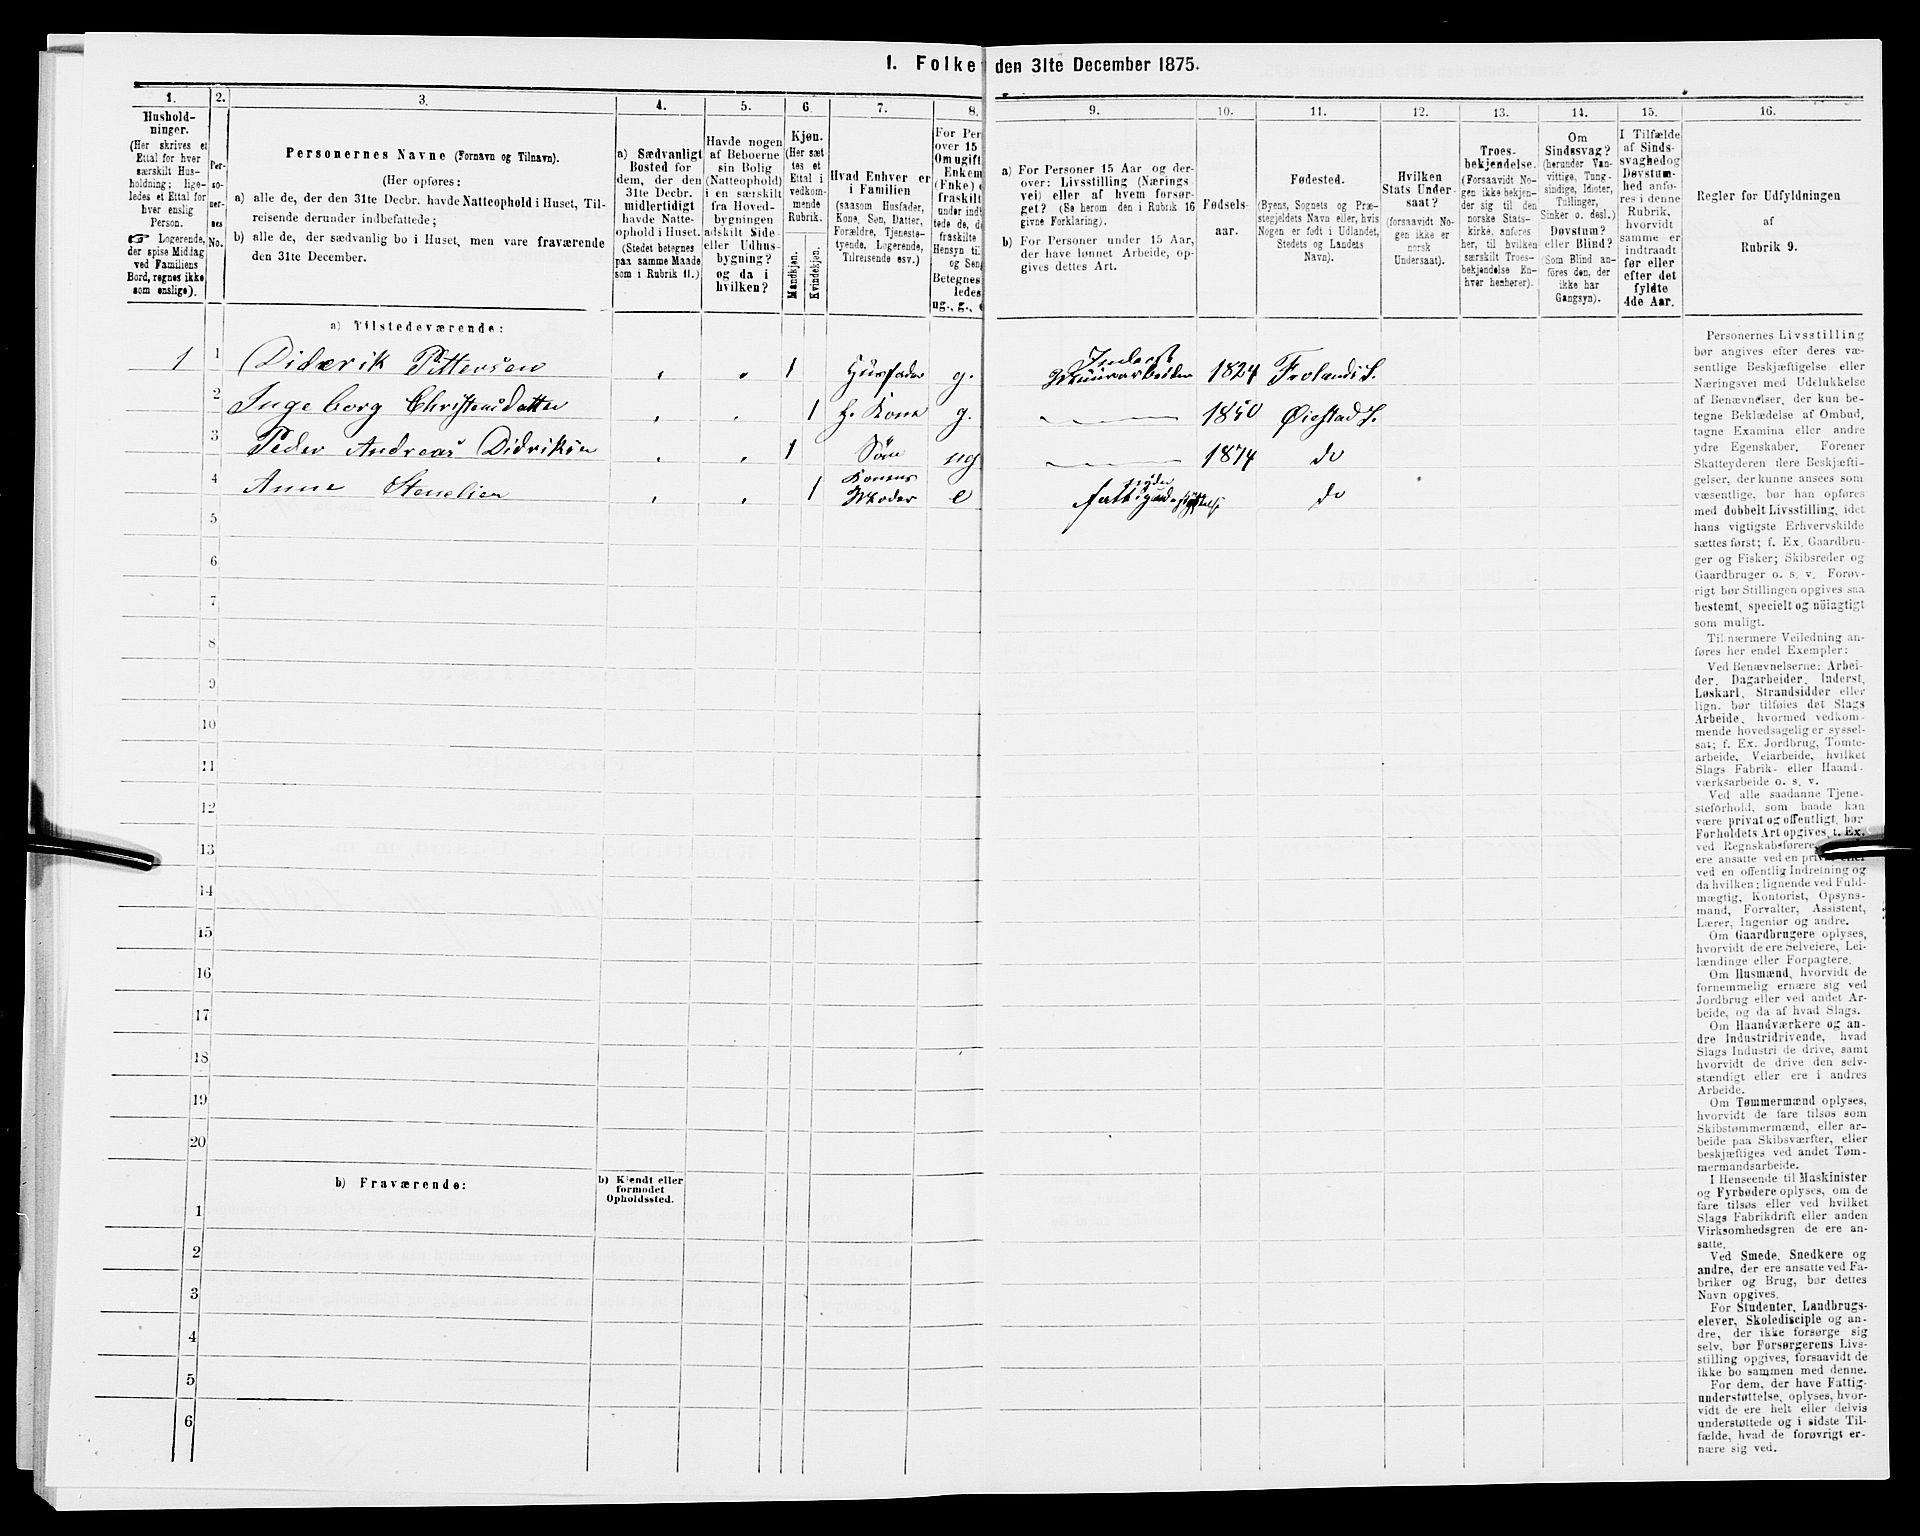 I. Folke den 31te December 1875.
1. 2. 3. 4. 5. 6. 7. 8. 9. 10. 11. 12. 13. 14. 15. 16.
Hushold-
ninger.
(Her skrives et
Ettal for hver
særskilt Hus-
holdning; lige-
ledes et Ettal for
hver enslig
Person.
☞ Logerende,
der spise Middag
ved Familiens
Bord, regnes ikke
som enslige).
Per-
so-
ner-
nes
No.
Personernes Navne (Fornavn og Tilnavn).
(Her opføres:
a) alle de, der den 31te Decbr. havde Natteophold i Huset, Til-
reisende derunder indbefattede;
b) alle de, der sædvanlig bo i Huset, men vare fraværende
den 31te December.
a) Sædvanligt
Bosted for
dem, der den
31te Decbr.
midlertidigt
havde Natte-
ophold i Huset.
(Stedet betegnes
paa samme Maade
som i Rubrik 11.)
Havde nogen
af Beboerne
sin Bolig
(Natteophold)
i en særskilt
fra Hoved-
bygningen
adskilt Side-
eller Udhus-
bygning?
og da i
hvilken?
Kjøn.
(Her sæt-
tes et
Ettal i
vedkom-
mende
Rubrik.
Mandkjøn.
Kvindekjøn.
Hvad Enhver er
i Familien
(saasom Husfader,
Kone, Søn, Datter,
Forældre, Tjeneste-
tyende, Logerende,
Tilreisende osv.)
For Per
over 15
Om ugift
Enkem
(Enke) e
fraskilt
under indb
tede de, d
fraskilte
Hensyn til
og Sen
Betegnes
ledes
ug., g., e
a) For Personer 15 Aar og der-
over: Livsstilling (Nærings-
vei) eller af hvem forsør-
get? (Se herom den i Rubrik 16
givne Forklaring).
b) For Personer under 15 Aar,
der have lønnet Arbeide, op-
gives dettes Art.
Fødsels-
aar.
Fødested.
(Byens, Sognets og Præ-
stegjeldets Navn eller, hvis
Nogen er født i Udlandet,
Stedets og Landets
Navn).
Hvilken
Stats Under-
saat?
(forsaavidt No-
gen ikke er
norsk
Undersaat).
Troes-
bekjendelse.
(Forsaavidt No-
gen ikke bekjen-
der sig til den
norske Stats-
kirke, anføres
her, til hvilken
særskilt Troes-
bekjendelse En-
hver henhører).
Om
Sindssvag?
(herunder Van-
vittige, Tung-
sindige, Idioter,
Tullinger,
Sinker o. desl.)
Døvstum?
eller Blind?
(Som Blind an-
føres den, der
ikke har
Gangsyn).
I Tilfælde
af Sinds-
svaghed og
Døvstum-
hed anfø-
res i denne
Rubrik,
hvorvidt
samme er
indtraadt
før eller
efter det
fyldte
4de Aar.
Regler for Udfyldningen
af
Rubrik 9.
a) Tilstedeværende:
1 1 Diderik Pittersen 1 Husfader g. Inderst Muurarbeider 1824 Frolands S.
2 Ingeborg Christensdatter 1 h. Kone g. 1850 Øiestad S.
3 Peder Andreas Didriksen 1 Søn ug 1874 do
4 Anne 1 Konens Moder e nyder do
5
6
7
8
9
10
11
12
13
14
15
16
17
18
19
20
b) Fraværende:
b) Kjendt eller
formodet
Opholdssted.
1
2
3
4
5
6
Personernes Livsstilling
bør angives efter deres væ-
sentlige Beskjæftigelse eller
Næringsvei med Udelukkelse
af Benævnelser, der kun be-
tegne Beklædelse af Ombud,
tagne Examina eller andre
ydre Egenskaber. Forener
Skatteyderen flere Beskjæfti-
gelser, der kunne ansees som
væsentlige, bør han opføres
med dobbelt Livsstilling, idet
hans vigtigste Erhvervskilde
sættes først; f. Ex. Gaardbru-
ger og Fisker; Skibsreder og
Gaardbruger o. s. v. Forøv-
rigt bør Stillingen opgives saa
bestemt, specielt og nöiagtigt
som muligt.
Til nærmere Veiledning an-
føres her endel Exempler:
Ved Benævnelserne: Arbei-
der, Dagarbeider, Inderst,
Løskarl, Strandsidder eller
lign. bør tilføies det Slags
Arbeide, hvormed vedkom-
mende hovedsagelig er syssel-
sat; f. Ex. Jordbrug, Tomte-
arbeide, Veiarbeide, hvilket
Slags Fabrik- eller Haand-
værksarbeide o. s. v.
Ved alle saadanne Tjene-
steforhold, som baade kan
være privat og offentligt, bør
Forholdets Art opgives, t. Ex.
ved Regnskabsførere,
ere ansatte ved en privat eller
ved en offentlig Indretning og
da hvilken; lignende ved Fuld-
mægtig, Kontorist, Opsyns-
mand, Forvalter, Assistent,
Lærer, Ingeniør og andre.
Om Gaardbrugere oplyses,
hvorvidt de ere Selveiere, Lei-
lændinge eller Forpagtere.
Om Husmænd, hvorvidt de
fornemmelig ernære sig ved
Jordbrug eller ved andet Ar-
beide, og da af hvad Slags.
Om Haandværkere og an-
dre Industridrivende, hvad
Slags Industri de drive, samt
hvorvidt de drive den selv-
stændigt eller ere i andres
Arbeide.
Om Tømmermænd oplyses,
hvorvidt de fare tilsøs som
Skibstømmermænd, eller ar-
beide paa Skibsværfter, eller
beskjæftiges ved andet Tøm-
mermandsarbeide.
I Henseende til Maskinister
og Fyrbødere oplyses, om de
fare tilsøs eller ved hvilket
Slags Fabrikdrift eller anden
Virksomhedsgren de ere an-
satte.
Ved Smede, Snedkere og
andre, der ere ansatte ved Fa-
briker og Brug, bør dettes
Navn opgives.
For Studenter, Landbrugs-
elever, Skoledisciple og an-
dre, der ikke forsørge sig
selv, bør Forsørgerens Livs-
stilling opgives, forsaavidt de
ikke bo sammen med denne.
For dem, der have Fattig-
understøttelse, oplyses, hvor-
vidt de ere helt eller delvis
understøttede og i sidste Til-
fælde, hvad de forøvrigt er-
nære sig ved.